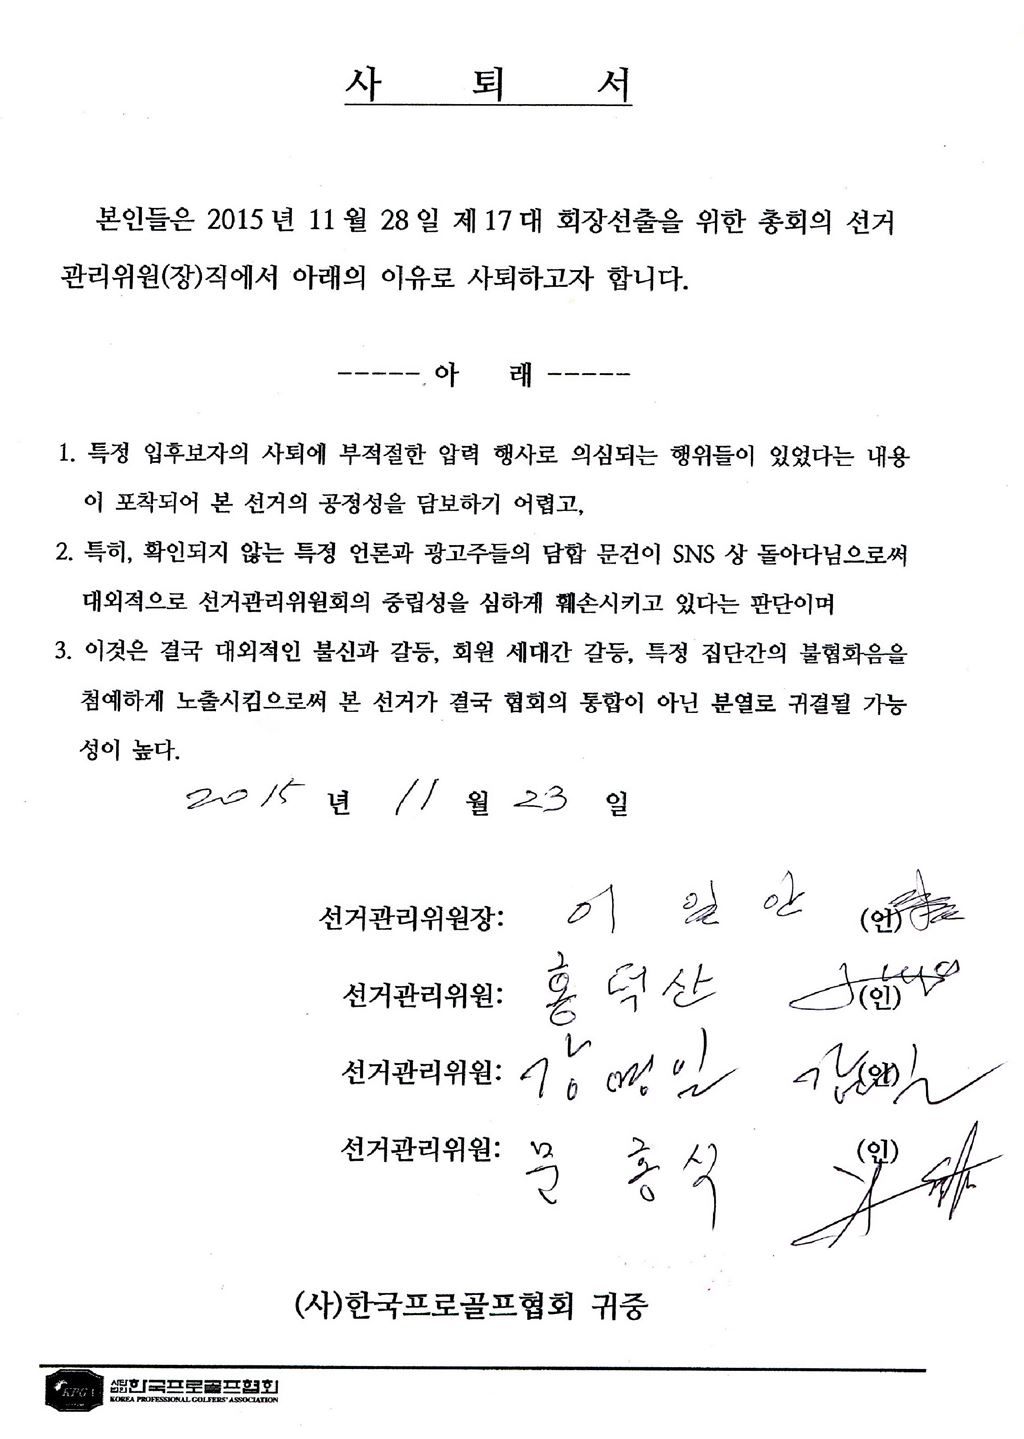 사 퇴 서
본인들은 2015년 11월 28일 제17대 회장선출을 위한 총회의 선거
관리위원(장)직에서 아래의 이유로 사퇴하고자 합니다.
----- 아 래 -----
1. 특정 입후보자의 사퇴에 부적절한 압력 행사로 의심되는 행위들이 있었다는 내용
이 포착되어 본 선거의 공정성을 담보하기 어렵고,
2. 특히, 확인되지 않는 특정 언론과 광고주들의 담합 문건이 SNS 상 돌아다님으로써
대외적으로 선거관리위원회의 중립성을 심하게 훼손시키고 있다는 판단이며
3. 이것은 결국 대외적인 불신과 갈등, 회원 세대간 갈등, 특정 집단간의 불협화음을
첨예하게 노출시킴으로써 본 선거가 결국 협회의 통합이 아닌 분열로 귀결될 가능
성이 높다.
2015 년 11 월 23 일
선거관리위원장: 이 일 안 (인)
선거관리위원: 홍덕산 (인)
선거관리위원: 강명일 (인)
선거관리위원: 문홍식 (인)
(사)한국프로골프협회 귀중
KPGA 사단법인 한국프로골프협회
KOREA PROFESSIONAL GOLFERS' ASSOCIATION